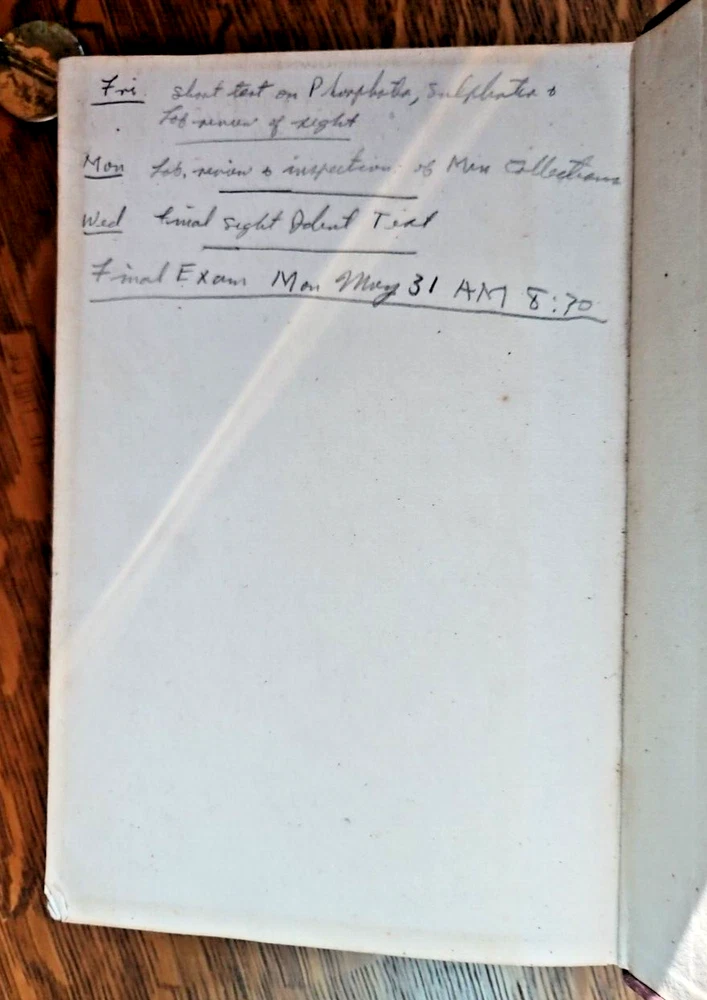 Fri. Short test on Phosphates, Sulphates &
Lab review of sight
Mon Lab. review & inspection of Min Collections
Wed Final Sight Ident Test
Final Exam Mon May 31 AM 8:30